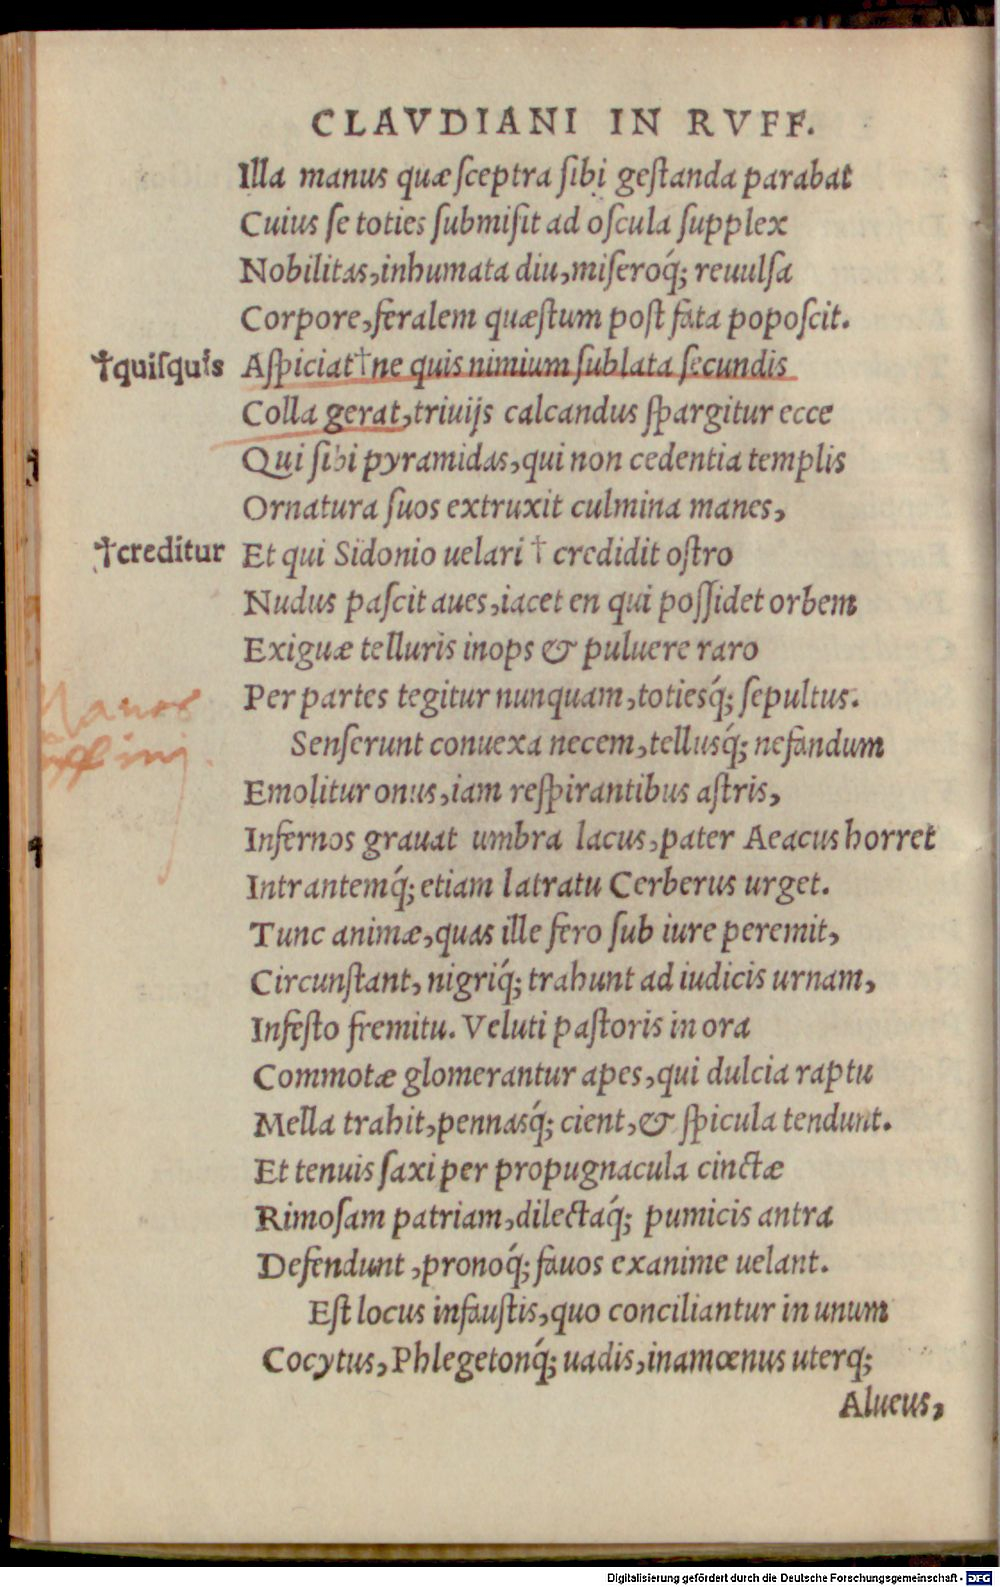 CLAVDIANI IN RVFF.
Illa manus quæ ſceptra ſibi geſtanda parabat
Cuius ſe toties ſubmiſit ad oſcula ſupplex
Nobilitas, inhumata diu, miſeroq́; reuulſa
Corpore, feralem quæſtum poſt fata popoſcit.
†quiſquis Aſpiciat † ne quis nimium ſublata ſecundis
Colla gerat, triuijs calcandus ſpargitur ecce
Qui ſibi pyramidas, qui non cedentia templis
Ornatura ſuos extruxit culmina manes,
†creditur Et qui Sidonio uelari † credidit oſtro
Nudus paſcit aues, iacet en qui poſſidet orbem
Exiguæ telluris inops & puluere raro
Per partes tegitur nunquam, totiesq́; ſepultus.
Senſerunt conuexa necem, tellusq́; nefandum
Emolitur onus, iam reſpirantibus aſtris,
Infernos grauat umbra lacus, pater Aeacus horret
Intrantemq́; etiam latratu Cerberus urget.
Tunc animæ, quas ille fero ſub iure peremit,
Circunſtant, nigriq́; trahunt ad iudicis urnam,
Infeſto fremitu. Veluti paſtoris in ora
Commotæ glomerantur apes, qui dulcia raptu
Mella trahit, pennasq́; cient, & ſpicula tendunt.
Et tenuis ſaxi per propugnacula cinctæ
Rimoſam patriam, dilectaq́; pumicis antra
Defendunt, pronoq́; fauos examine uelant.
Eſt locus infauſtis, quo conciliantur in unum
Cocytus, Phlegetonq́; uadis, inamœnus uterq;
Alueus,
Digitalisierung gefördert durch die Deutsche Forschungsgemeinschaft - DFG